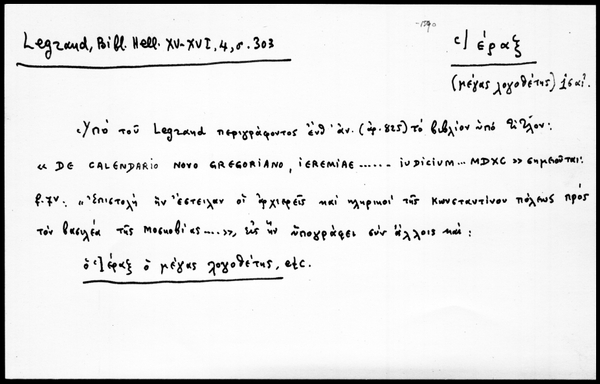 -1590
Legrand, Bibl. Hell. XV-XVI, 4, σ. 303
Ἱέραξ
(μέγας λογοθέτης)
Ὑπὸ τοῦ Legrand περιγράφοντος ἐνθ' ἀν. (ἀρ. 825) τὸ βιβλίον ὑπὸ τίτλον:
« DE CALENDARIO NOVO GREGORIANO, IEREMIAE ...... IUDICIUM ... MDXC » σημειοῦται:
f. 7v: « Ἐπιστολὴ ἣν ἔστειλαν οἱ ἀρχιερεῖς καὶ κληρικοὶ τῆς Κωνσταντίνου πόλεως πρὸς
τὸν βασιλέα τῆς Μοσκοβίας .... », εἰς ἣν ὑπογράφει σὺν ἄλλοις καὶ:
ὁ Ἱέραξ ὁ μέγας λογοθέτης, etc.